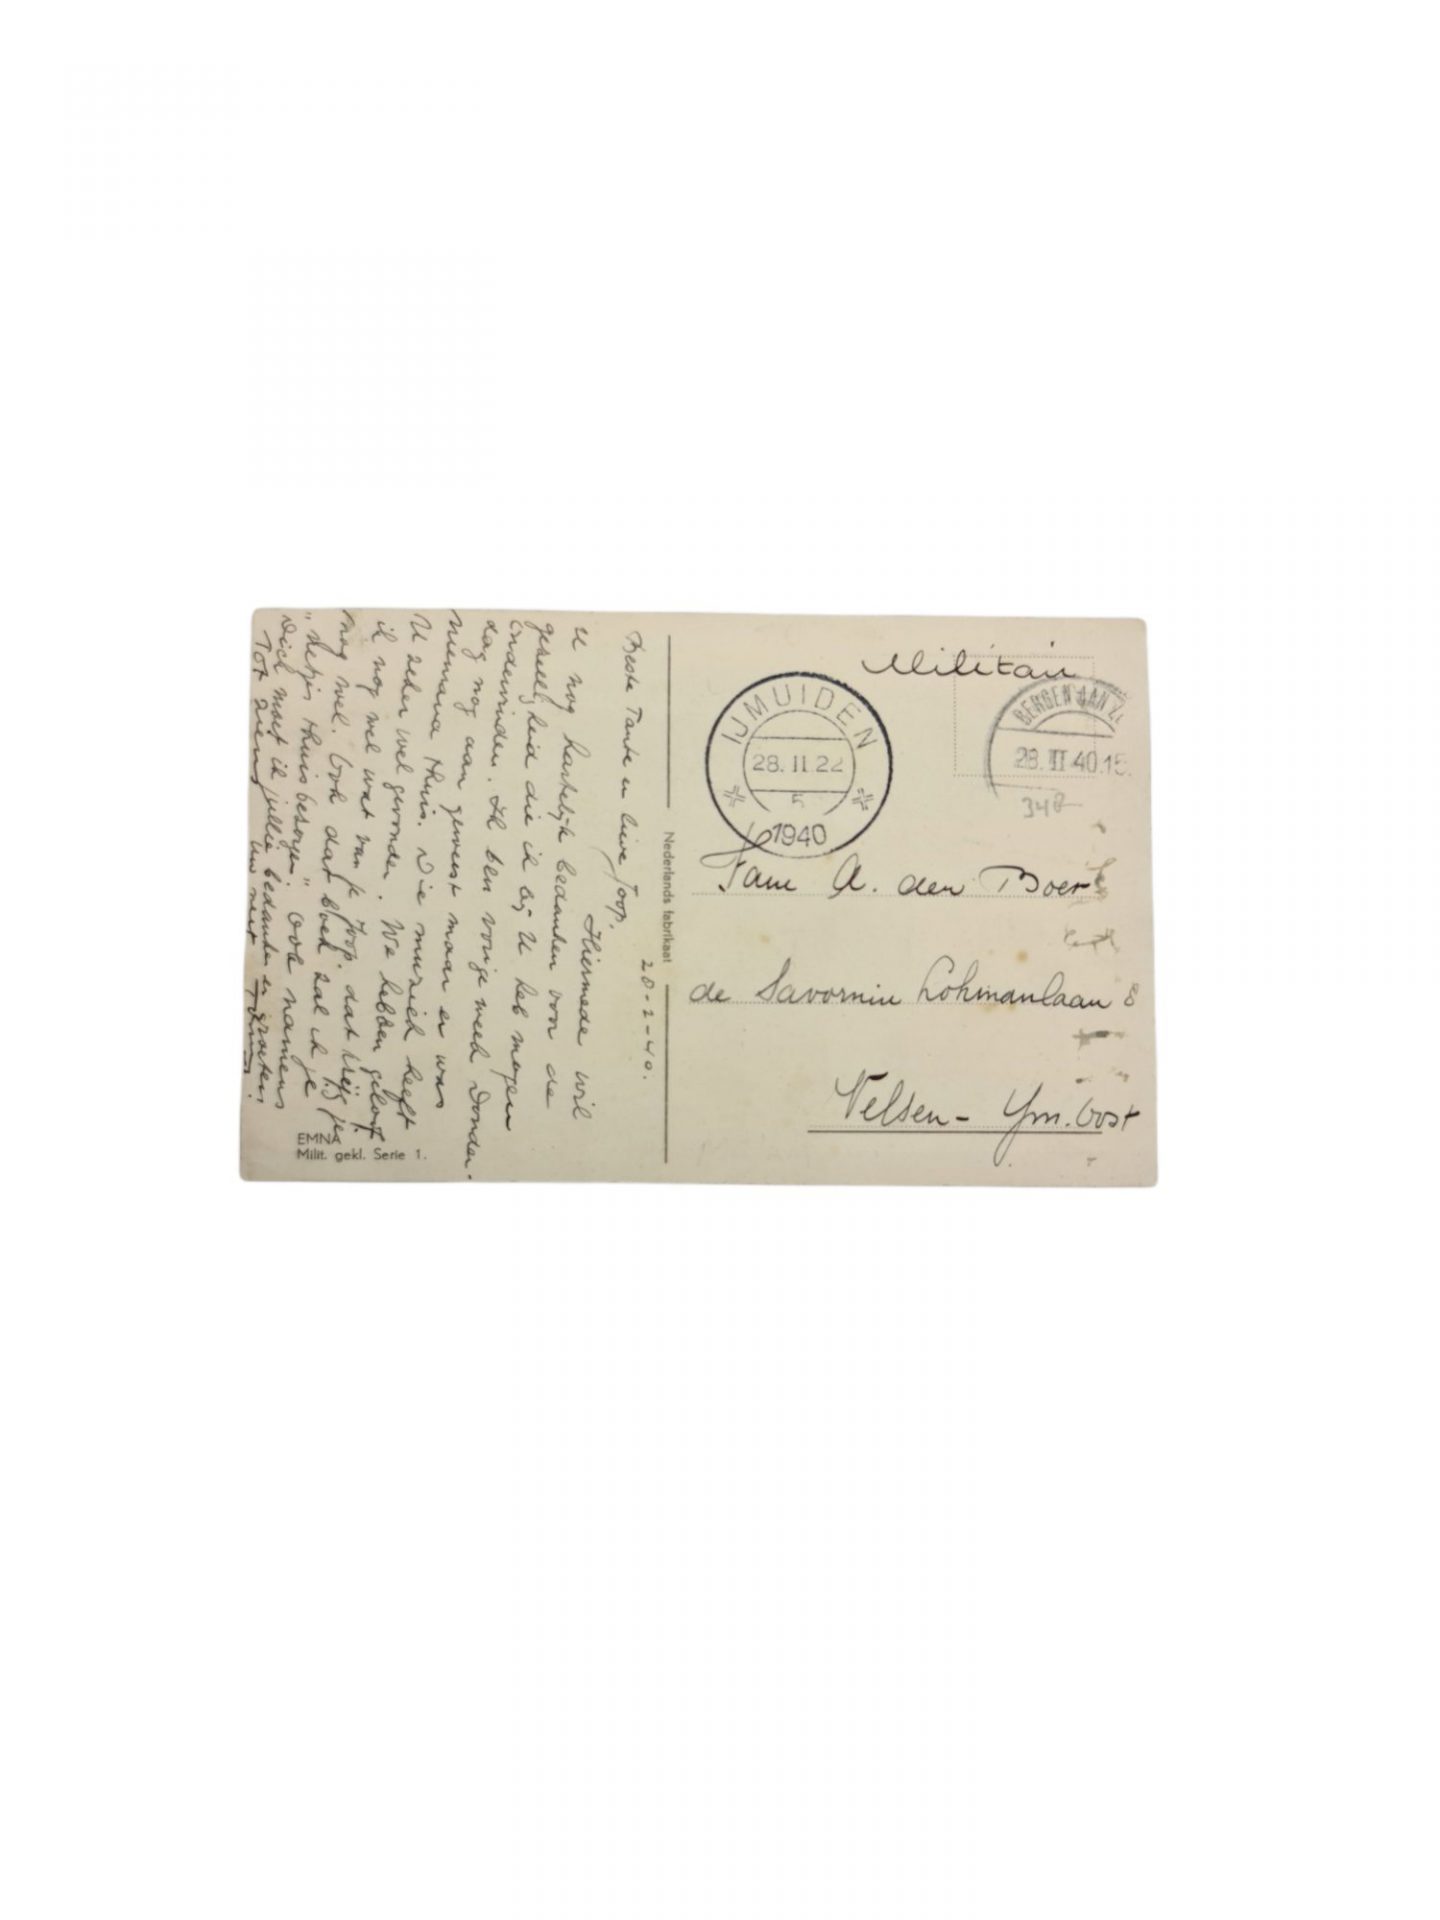 28-2-40.
Beste Tante en lieve Joop.
Hiermede wil
U nog hartelijk bedanken voor de
gezelligheid die ik bij U heb mogen
ondervinden. Ik ben vorige week Donder-
dag nog aan geweest maar er was
niemand thuis. Die muziek heeft
U zeker wel gevonden. We hebben geloof
ik nog wel wat van je Joop. dat krijg je
nog wel. Ook dat boek zal ik je
thuisbezorgen." Ook namens
Dick moet ik jullie bedanken en groeten.
Tot ziens
uw neef
EMNA
Milit. gekl. Serie 1.
Nederlands fabrikaat
Militair
IJMUIDEN
28.II.22
1940
BERGEN AAN ZEE
28.II 40.15
348
Fam A. den Boer
de Savornin Lohmanlaan 8
Velsen - Ym. Oost